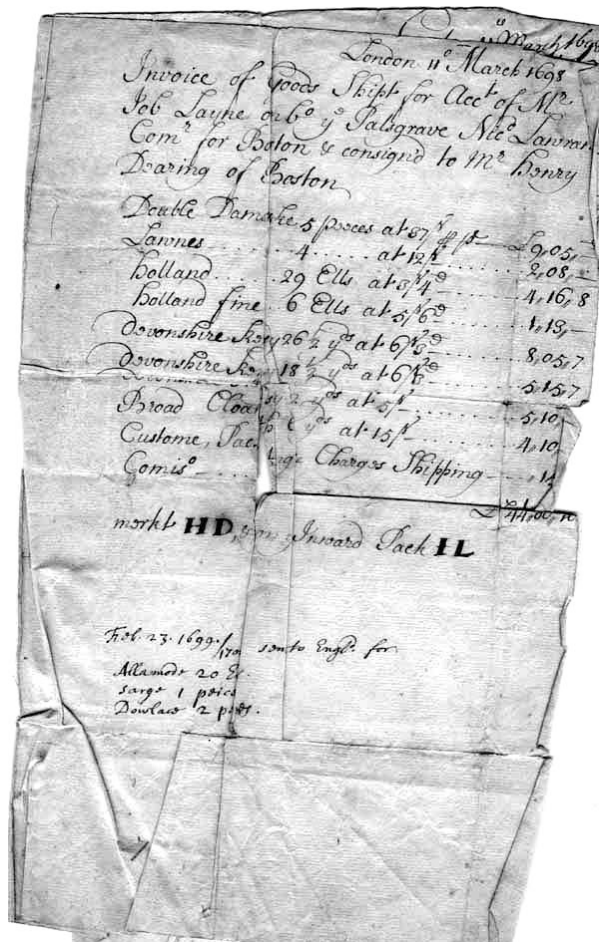 March 1698
London 11º March 1698
Invoice of Goods Shipt for Acct of Mr
Job Layne on bo ye Palsgrave Nico Lawran
Comr for Boston & consignd to Mr Henry
Dearing of Boston
Double Damaske 5 pieces at 37s P ps £9,05,
Lawnes 4 at 12s 2,08,
Holland 29 Ells at 3s 4d 4,16,8
Holland fine 6 Ells at 5s 6d 1,13,
Devonshire Kersy 26½ yds at 6s 3d 8,05,7
Devonshire Kersy 18½ yds at 6s 3d 5,15,7
2 yds at 5s 5,10
Broad Cloath 6 yds at 15s 4,10
Custome, Charges Shipping
Comiso
£44,00,10
merkt HD Inward Pack IL
Feb. 23. 1699/1700 sent to Engld. for
Allamode 20 El.
Sarge 1 peice
Dowlace 2 peces.